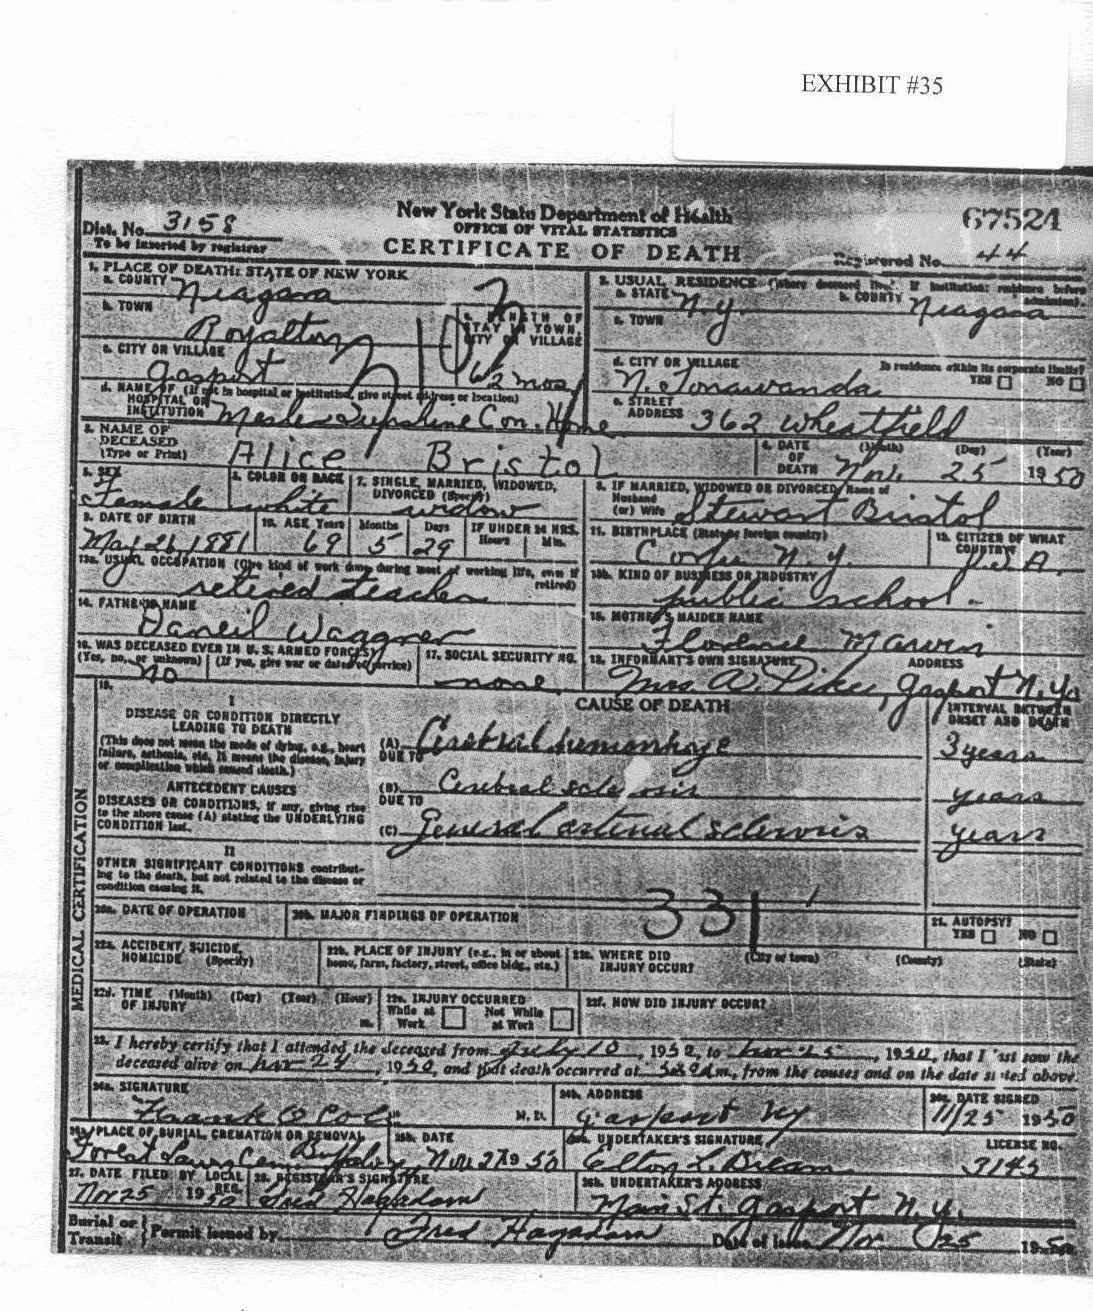 EXHIBIT #35
New York State Department of Health
OFFICE OF VITAL STATISTICS
CERTIFICATE OF DEATH
67524
Dist. No. 3158
To be inserted by registrar
Registered No. 44
1. PLACE OF DEATH: STATE OF NEW YORK
a. COUNTY Niagara
b. TOWN
Royalton
c. CITY OR VILLAGE
Gasport
LENGTH OF STAY IN TOWN, CITY OR VILLAGE
6 1/2 mos
d. NAME OF (If not in hospital or institution, give street address or location)
HOSPITAL OR
INSTITUTION Sunshine Con. Home
2. USUAL RESIDENCE (Where deceased lived. If institution: residence before admission).
a. STATE N.Y. b. COUNTY Niagara
c. TOWN
d. CITY OR VILLAGE Is residence within its corporate limits?
N. Tonawanda YES NO
e. STREET
ADDRESS 362 Wheatfield
3. NAME OF
DECEASED
(Type or Print) Alice Bristol
4. DATE OF DEATH (Month) (Day) (Year)
Nov. 25 1950
5. SEX
Female
6. COLOR OR RACE
white
7. SINGLE, MARRIED, WIDOWED,
DIVORCED (Specify)
widow
8. IF MARRIED, WIDOWED OR DIVORCED, Name of
Husband
(or) Wife Stewart Bristol
9. DATE OF BIRTH
May 26, 1881
10. AGE Years Months Days
69 5 29
IF UNDER 24 HRS.
Hours Min.
11. BIRTHPLACE (State or foreign country)
Corfu N.Y.
12. CITIZEN OF WHAT
COUNTRY?
U.S.A.
13a. USUAL OCCUPATION (Give kind of work done during most of working life, even if retired)
retired teacher
13b. KIND OF BUSINESS OR INDUSTRY
public school.
14. FATHER'S NAME
Daneil Waggner
15. MOTHER'S MAIDEN NAME
Florence Marvin
16. WAS DECEASED EVER IN U. S. ARMED FORCES?
(Yes, no, or unknown) (If yes, give war or dates of service)
no
17. SOCIAL SECURITY NO.
none
18. INFORMANT'S OWN SIGNATURE ADDRESS
Mrs A. Pike, Gasport N.Y.
MEDICAL CERTIFICATION
19.
CAUSE OF DEATH
INTERVAL BETWEEN
ONSET AND DEATH
I
DISEASE OR CONDITION DIRECTLY
LEADING TO DEATH
(This does not mean the mode of dying, e.g., heart
failure, asthenia, etc. It means the disease, injury
or complication which caused death.)
(A) Cerebral hemorrhage 3 years
DUE TO
ANTECEDENT CAUSES
DISEASES OR CONDITIONS, if any, giving rise
to the above cause (A) stating the UNDERLYING
CONDITION last.
(B) Cerebral sclerosis years
DUE TO
(C) General arterial sclerosis years
II
OTHER SIGNIFICANT CONDITIONS contribut-
ing to the death, but not related to the disease or
condition causing it.
331
20a. DATE OF OPERATION
20b. MAJOR FINDINGS OF OPERATION
21. AUTOPSY?
YES NO
22a. ACCIDENT, SUICIDE,
HOMICIDE (Specify)
22b. PLACE OF INJURY (e.g., in or about
home, farm, factory, street, office bldg., etc.)
22c. WHERE DID
INJURY OCCUR?
(City or town) (County) (State)
22d. TIME (Month) (Day) (Year) (Hour)
OF INJURY m.
22e. INJURY OCCURRED
While at Work Not While at Work
22f. HOW DID INJURY OCCUR?
23. I hereby certify that I attended the deceased from July 10, 1950, to Nov 25, 1950, that I last saw the
deceased alive on 1950, and that death occurred at m., from the causes and on the date stated above.
24a. SIGNATURE
Frank C Cole M. D.
24b. ADDRESS
Gasport NY
24c. DATE SIGNED
11/25 1950
25a. PLACE OF BURIAL, CREMATION OR REMOVAL
Forest Lawn Cem. Buffalo
25b. DATE
Nov 27 1950
26a. UNDERTAKER'S SIGNATURE LICENSE NO.
Elton L. Bream 3145
27. DATE FILED BY LOCAL REG.
Nov 25 1950
28. REGISTRAR'S SIGNATURE
Fred Hagadorn
26b. UNDERTAKER'S ADDRESS
Main St. Gasport N.Y.
Burial or
Transit
Permit issued by Fred Hagadorn
Date of Issue Nov 25 1950